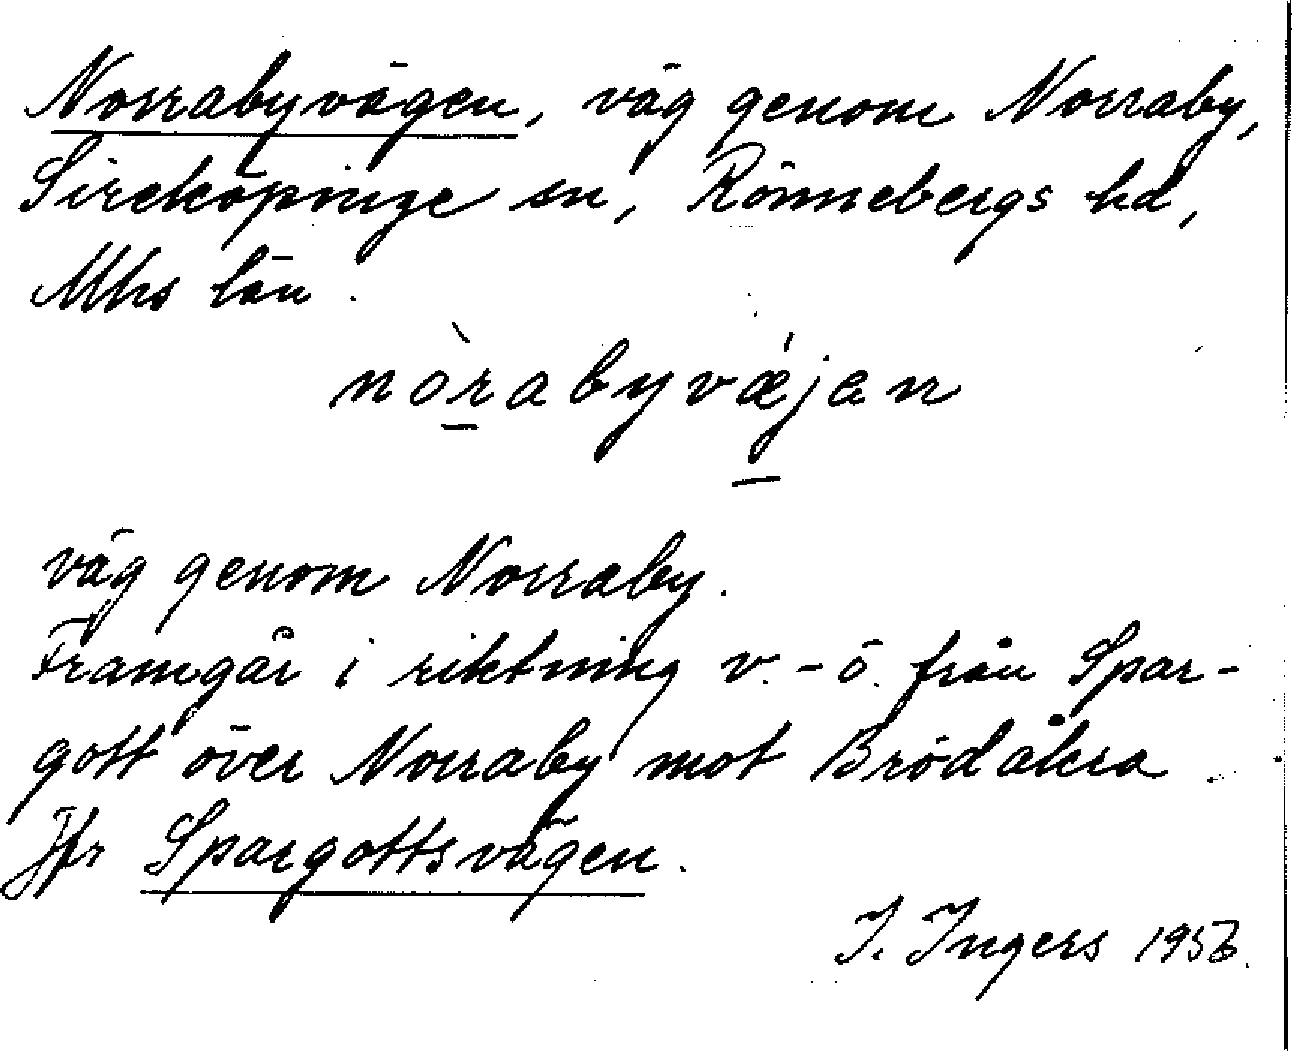 Norrabyvägen, väg genom Norraby,
Sireköpinge sn, Rönnebergs hd,
Mhs län.
nòrabyvǽjan
väg genom Norraby.
Framgår i riktning v. - ö. från Spar-
gott över Norraby mot Brödåkra
Jfr Spargottsvägen.
I. Ingers